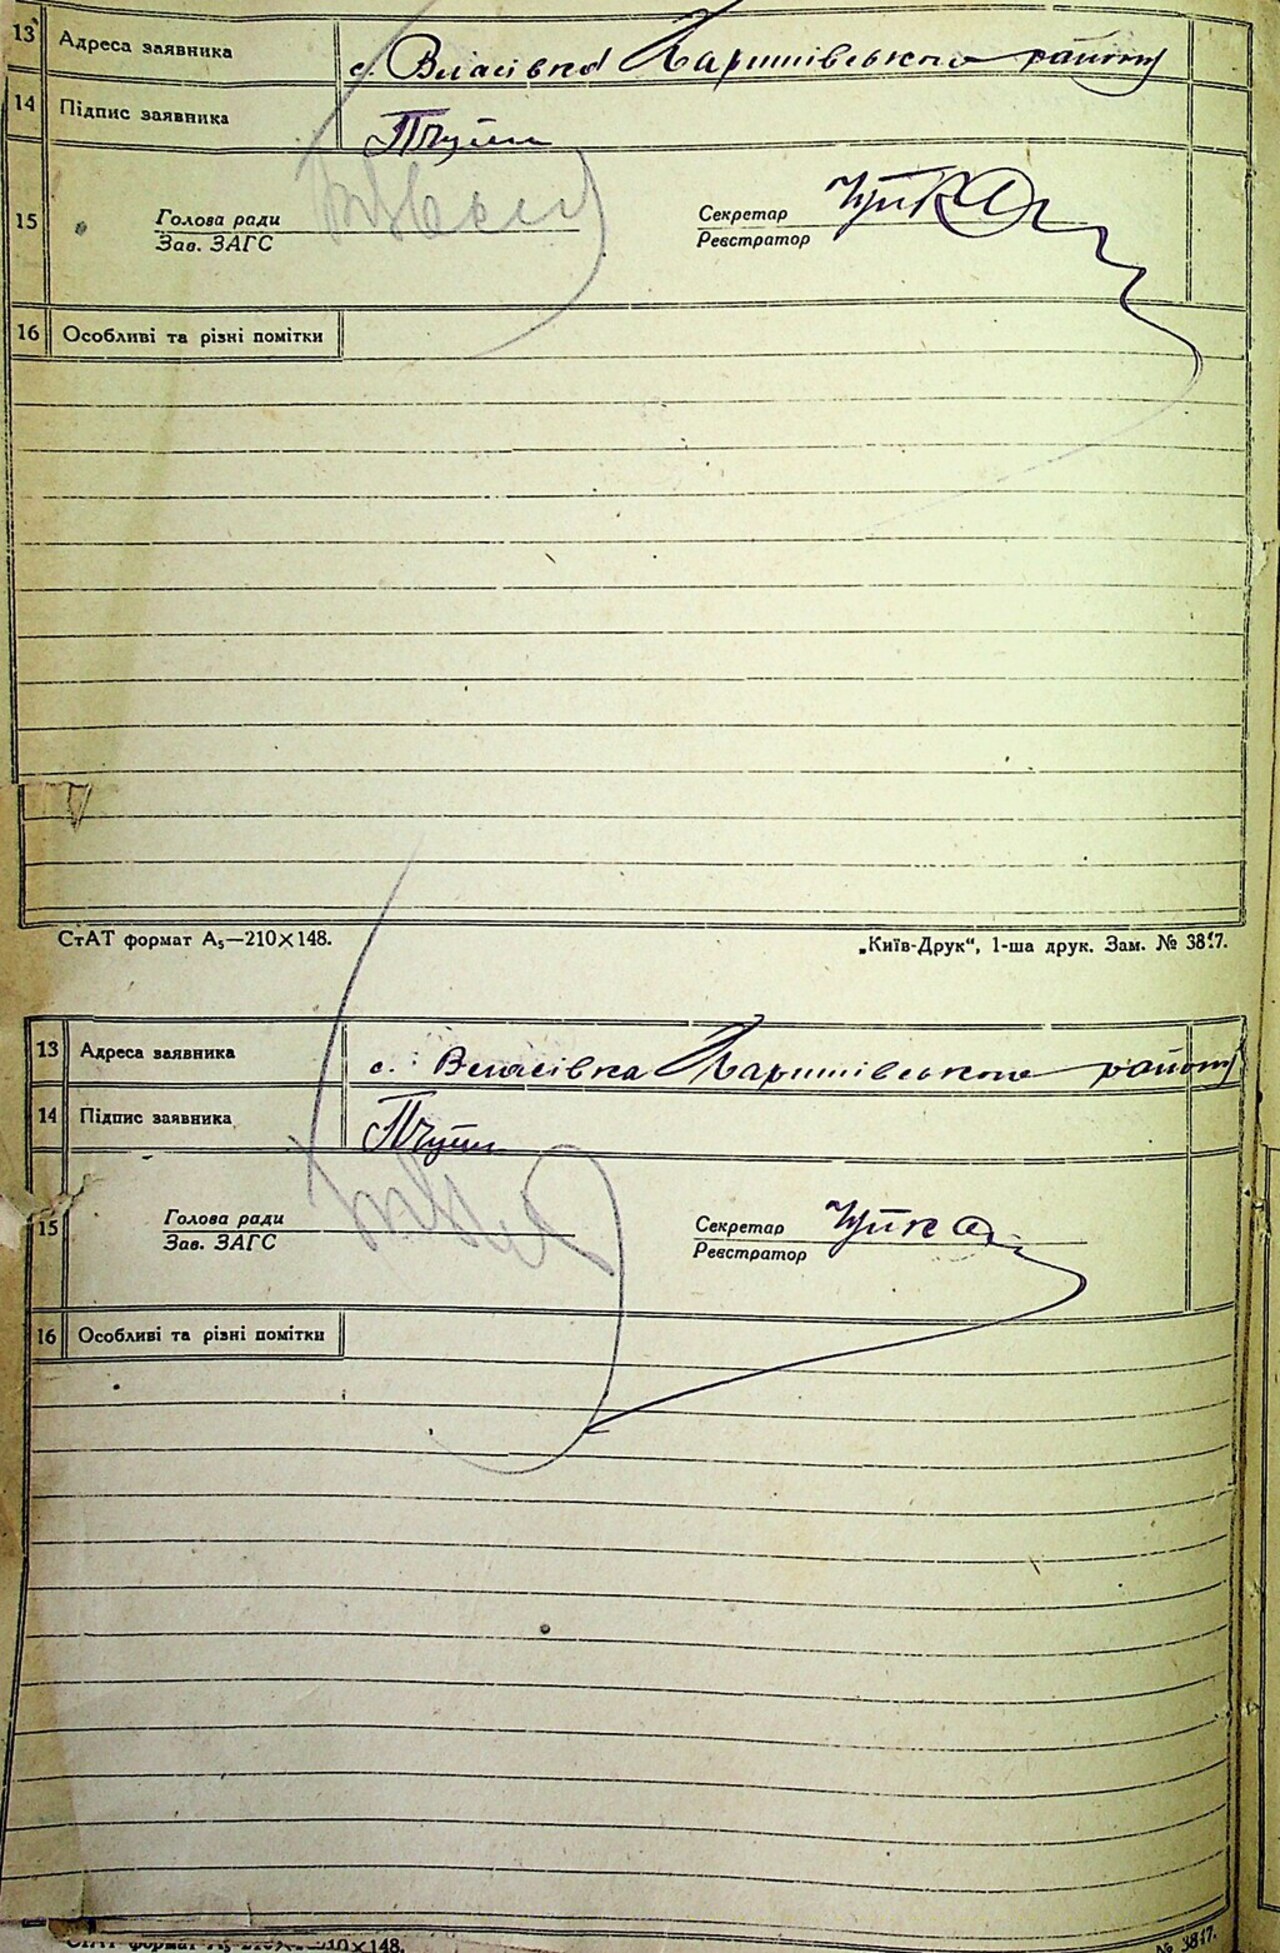 13 Адреса заявника с. Власівка Карлівського району
14 Підпис заявника
15 Голова ради Секретар
Зав. ЗАГС Реєстратор
16 Особливі та різні помітки
СтАТ формат А₅—210×148. „Київ-Друк“, 1-ша друк. Зам. № 3817.
13 Адреса заявника с. Власівка району
14 Підпис заявника
15 Голова ради Секретар
Зав. ЗАГС Реєстратор
16 Особливі та різні помітки
СтАТ формат А₅—210×148. № 3817.